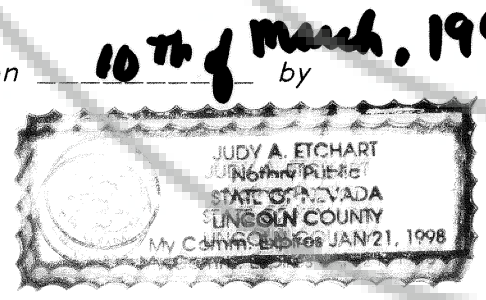 on 10th of March, 199
by
JUDY A. ETCHART
Notary Public
STATE OF NEVADA
LINCOLN COUNTY
My Comm. Expires JAN 21, 1998